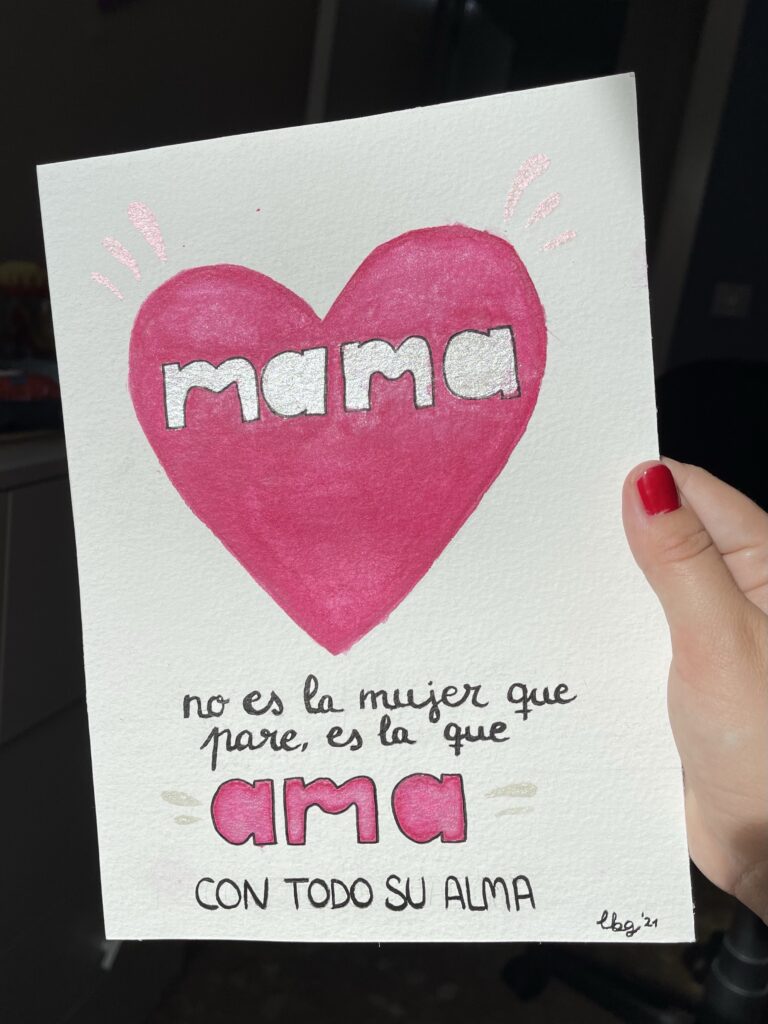 mama
no es la mujer que
pare, es la que
ama
CON TODO SU ALMA
lbg '21